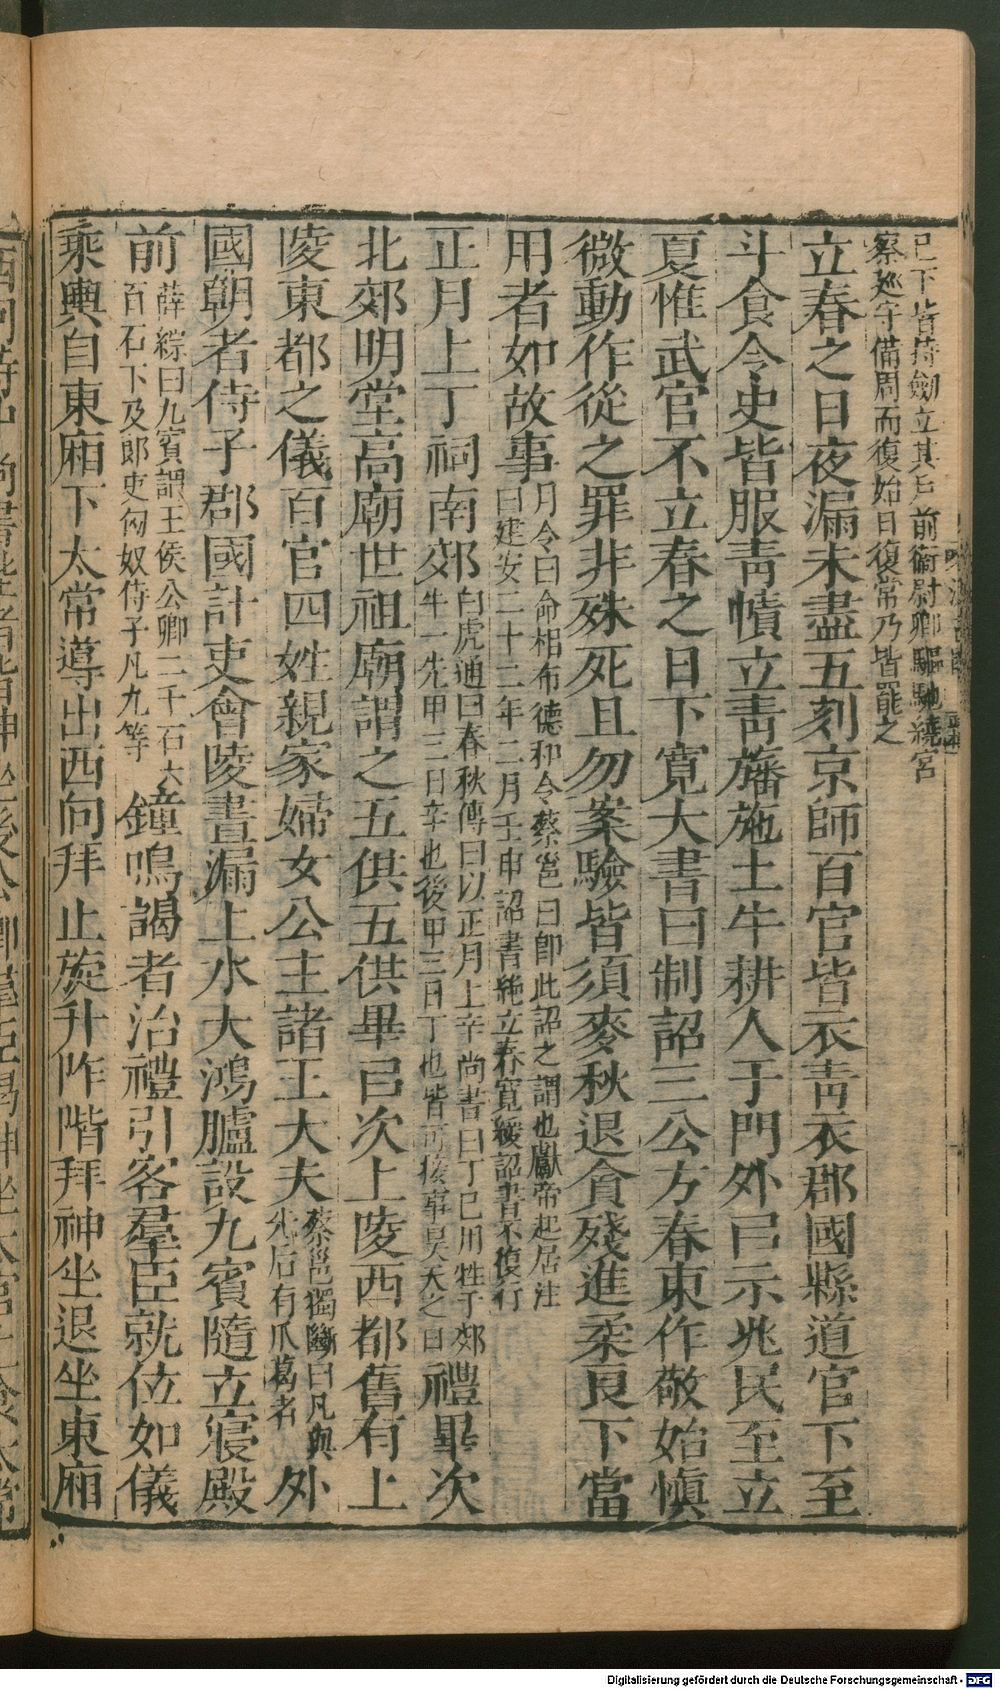 已下皆持劒立其戶前衞尉卿驅馳繞宮
察廵守備周而復始日復常乃皆罷之
立春之日夜漏未盡五刻京師百官皆衣靑衣郡國縣道官下至
斗食令史皆服靑幘立靑旛施土牛耕人于門外㠯示兆民至立
夏惟武官不立春之日下寬大書曰制詔三公方春東作敬始愼
微動作從之罪非殊死且勿案驗皆須麥秋退貪殘進柔良下當
用者如故事
月令曰命相布德和令蔡邕曰卽此詔之謂也獻帝起居注
曰建安二十二年二月壬申詔書絶立春寬緩詔書不復行
正月上丁祠南郊
白虎通曰春秋傳曰以正月上辛尚書曰丁巳用牲于郊
牛一先甲三日辛也後甲三日丁也皆可接事昊天之日
禮畢次
北郊明堂高廟世祖廟謂之五供五供畢㠯次上陵西都舊有上
陵東都之儀百官四姓親家婦女公主諸王大夫
蔡邕獨斷曰凡與
先后有瓜葛者
外
國朝者侍子郡國計吏會陵晝漏上水大鴻臚設九賓隨立寢殿
前
薛綜曰九賓謂王侯公卿二千石六
百石下及郎吏匈奴侍子凡九等
鐘鳴謁者治禮引客羣臣就位如儀
乘輿自東廂下太常導出西向拜止旋升阼階拜神坐退坐東廂
Digitalisierung gefördert durch die Deutsche Forschungsgemeinschaft - DFG